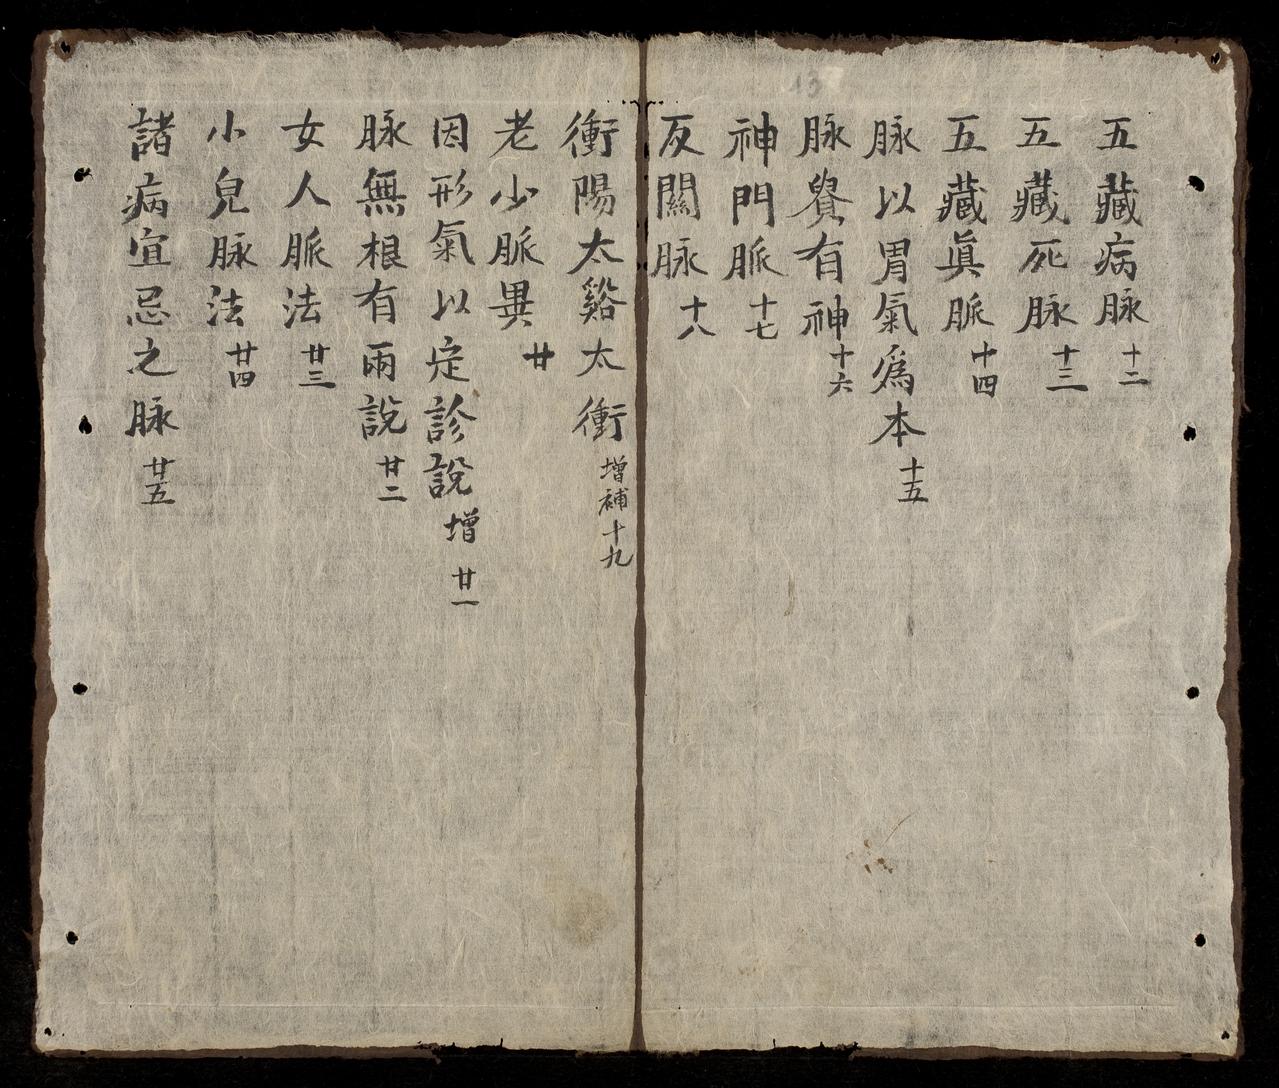 五藏病脉十二
五藏死脉十三
五藏眞脈十四
脉以胃氣爲本十五
脉貴有神十六
神門脈十七
反關脉十八
衝陽太谿太衝增補十九
老少脈異廿
因形氣以定診說增廿一
脉無根有兩說廿二
女人脈法廿三
小兒脉法廿四
諸病宜忌之脉廿五